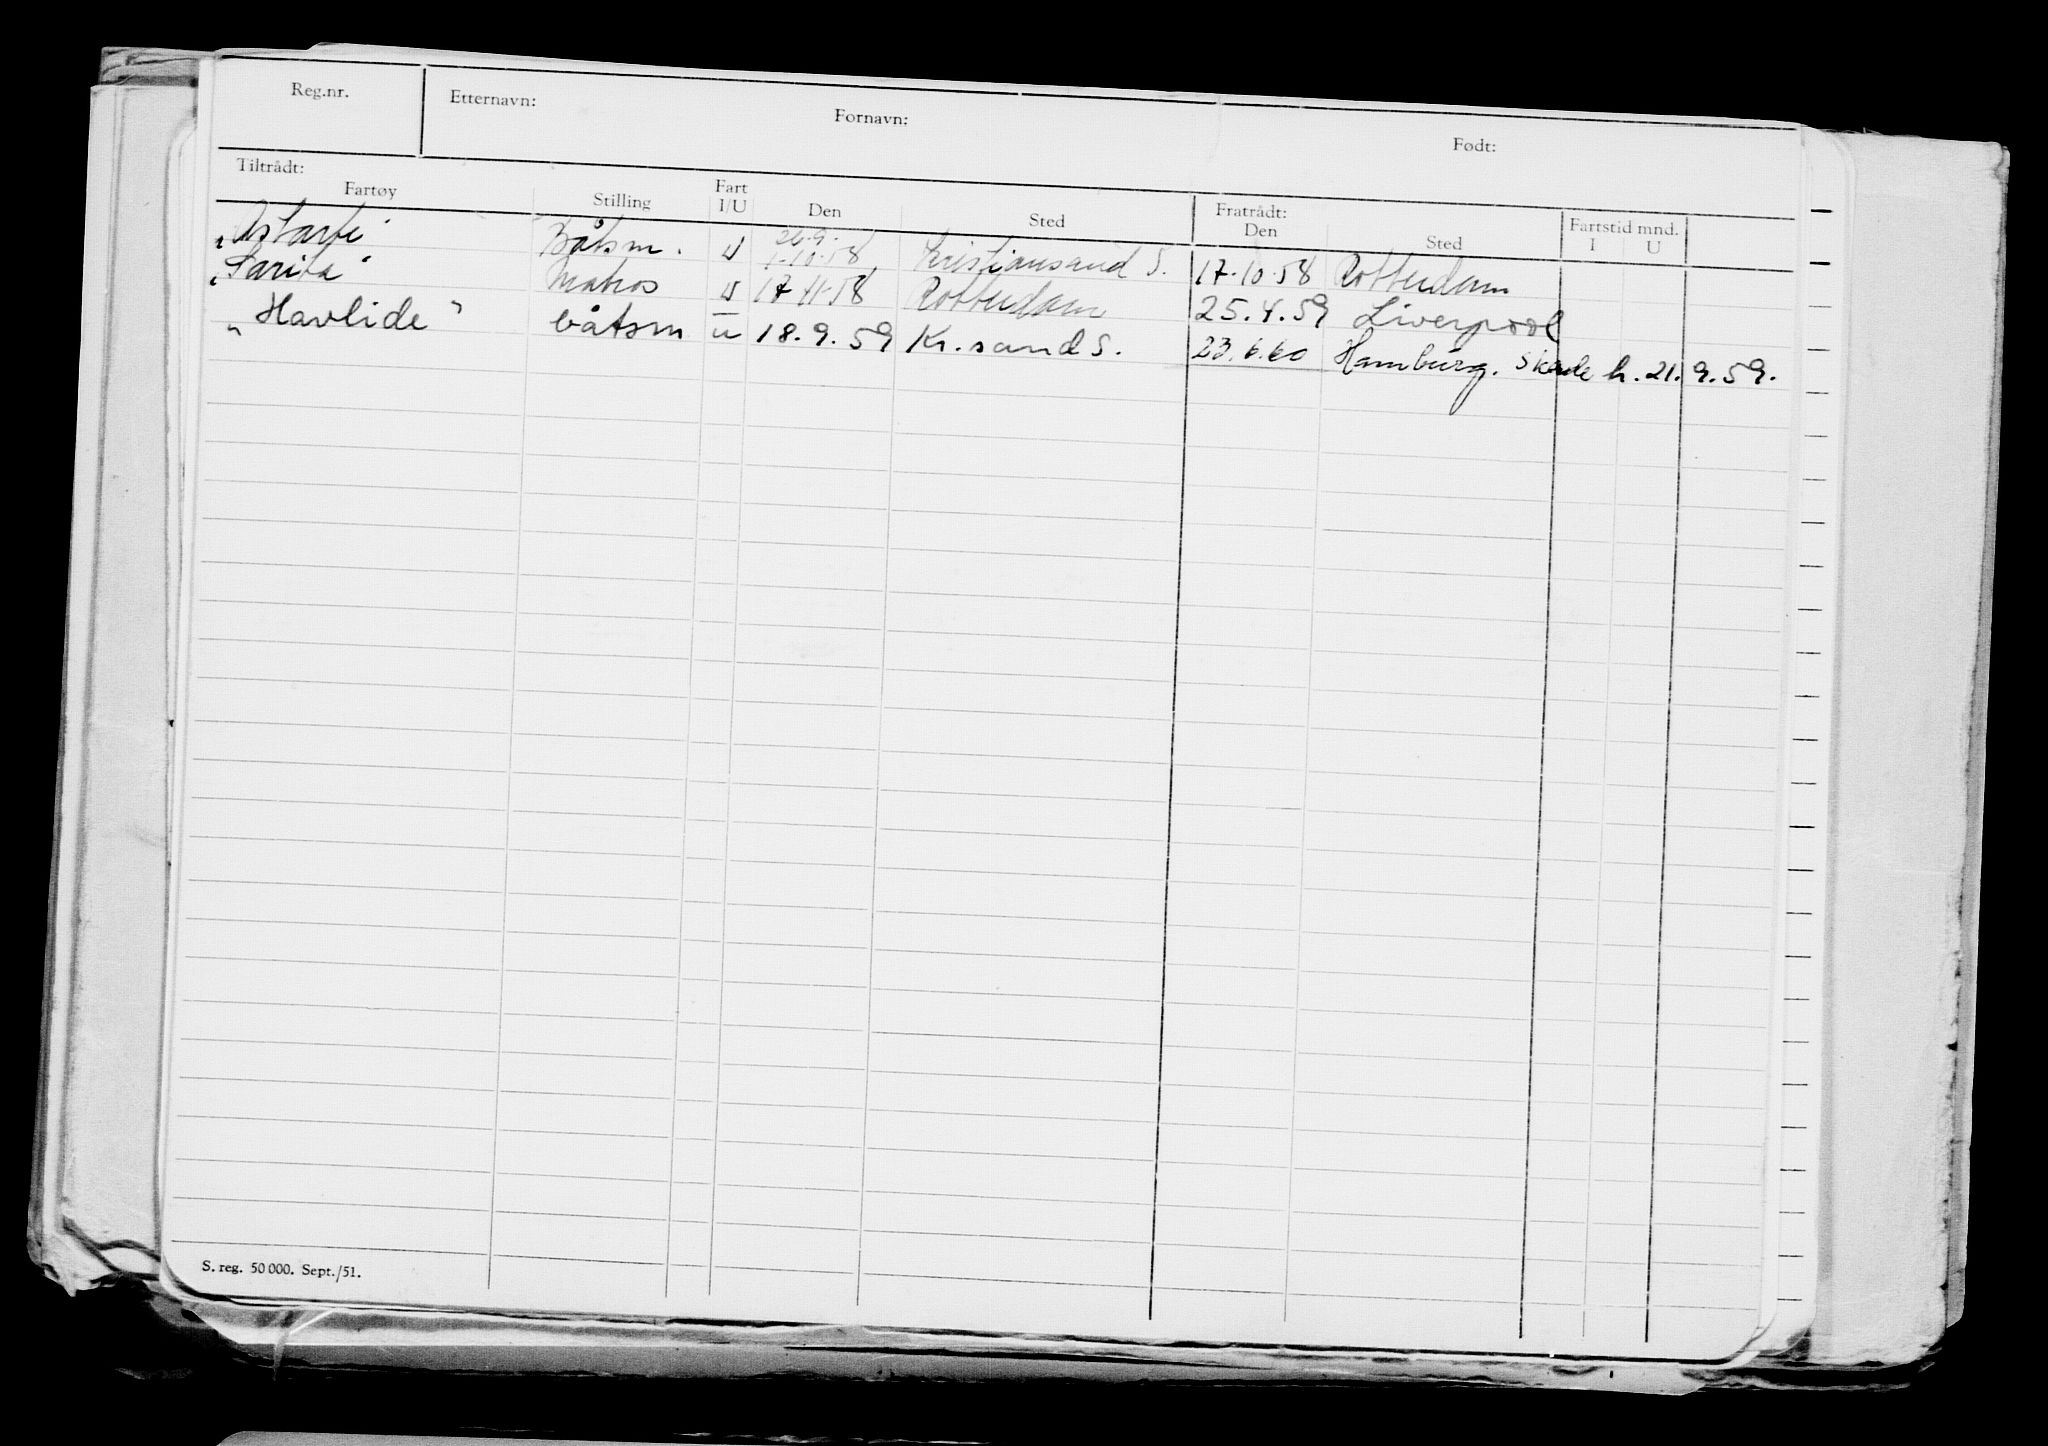 Reg.nr. Etternavn: Fornavn: Født:
Tiltrådt: Fratrådt: Fartstid mnd.
Fartøy Stilling Fart I/U Den Sted Den Sted I U
26.9.
"Astarte" Båtsm. U 1.10.58 Kristiansand S. 17.10.58 Rotterdam
"Sarita" Matros U 17.11.58 Rotterdam 25.4.59 Liverpool
"Havlide" båtsm u 18.9.59 Kr.sand S. 23.6.60 Hamburg. skade h. 21.9.59.
S. reg. 50 000. Sept./51.